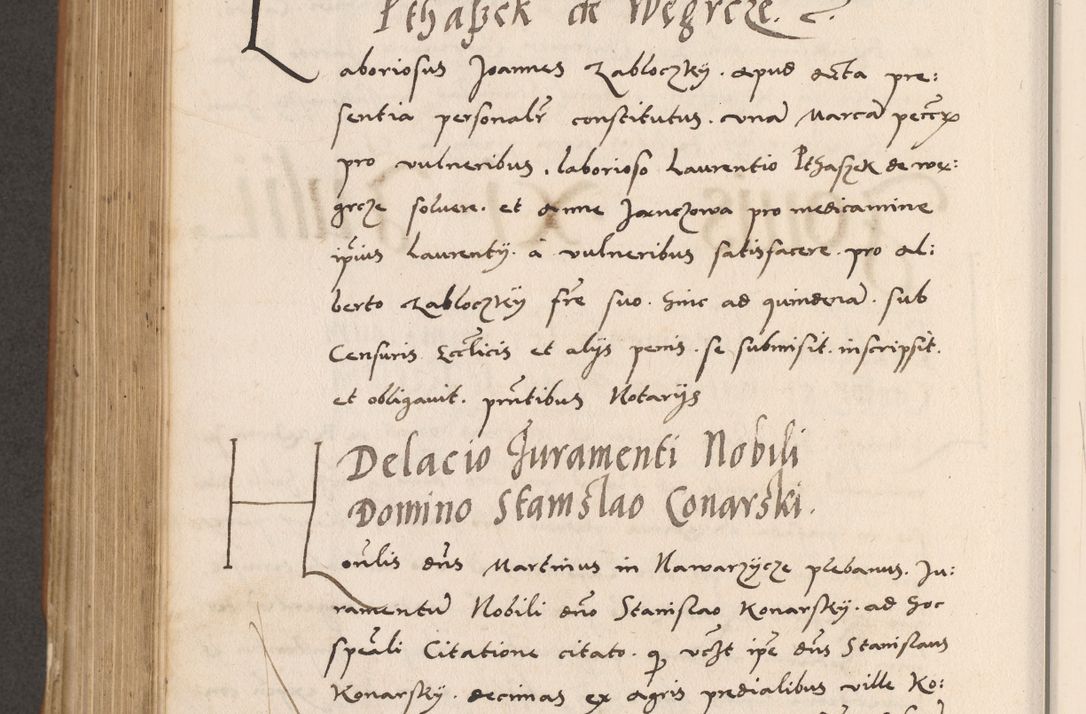 Pthaßek de Wegrcze.
Laboriosus Joannes Zabloczky. apud acta pre:
sentia personalr constitutus. cuna Marca peccx
pro vulneribus. laborioso Laurentio Pthaszek de we:
grcze solvere. et Anne Janczowa pro medicamine
ipius Laurentij. a vulneribus satisfacere. pro Al:
berto Zabloczky fre suo. hinc ad quindena. sub
Censuris Eccticis et alijs penis. se submisit. inscripsit.
et obligavit. pntibus Notarijs
Delacio Juramenti Nobili
Domino Stanislao Conarski.
Honlis dns Martinus in Nawarzycze plebanus. Ju:
ramentu Nobili dno Stanislao Konarsky. ad hoc
speali Citatione citato. q ipe dns Stanislaus
Konarsky. decimas ex agris predialibus ville Ko: